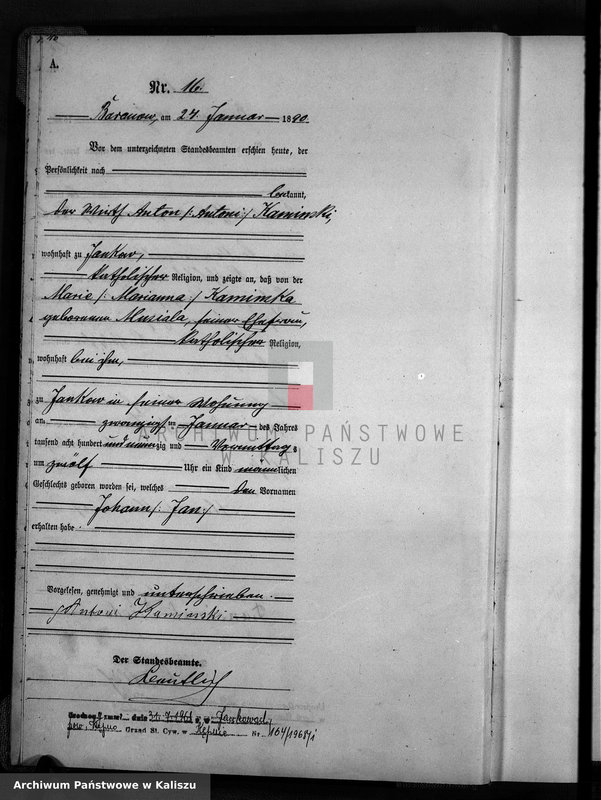 A.
Nr. 16.
Baranow, am 24. Januar 1890.
Vor dem unterzeichneten Standesbeamten erschien heute, der
Persönlichkeit nach
bekannt,
der Wirth Anton /: Antoni :/ Kaminski,
wohnhaft zu Jankow,
katholischer Religion, und zeigte an, daß von der
Marie /: Marianna :/ Kaminska
geborenen Musiala, seiner Ehefrau,
katholischer Religion,
wohnhaft bei ihm,
zu Jankow in seiner Wohnung
am zwanzigsten Januar des Jahres
tausend acht hundert und neunzig und Vormittags
um zwölf Uhr ein Kind männlichen
Geschlechts geboren worden sei, welches den Vornamen
Johann /: Jan :/
erhalten habe.
Vorgelesen, genehmigt und unterschrieben.
Antoni Kaminski
Der Standesbeamte.
dnia 31.7.1968
pow. Kępno Urząd St. Cyw. w Kępnie Nr. 164/1968/i
ARCHIWUM PAŃSTWOWE
W KALISZU
Archiwum Państwowe w Kaliszu